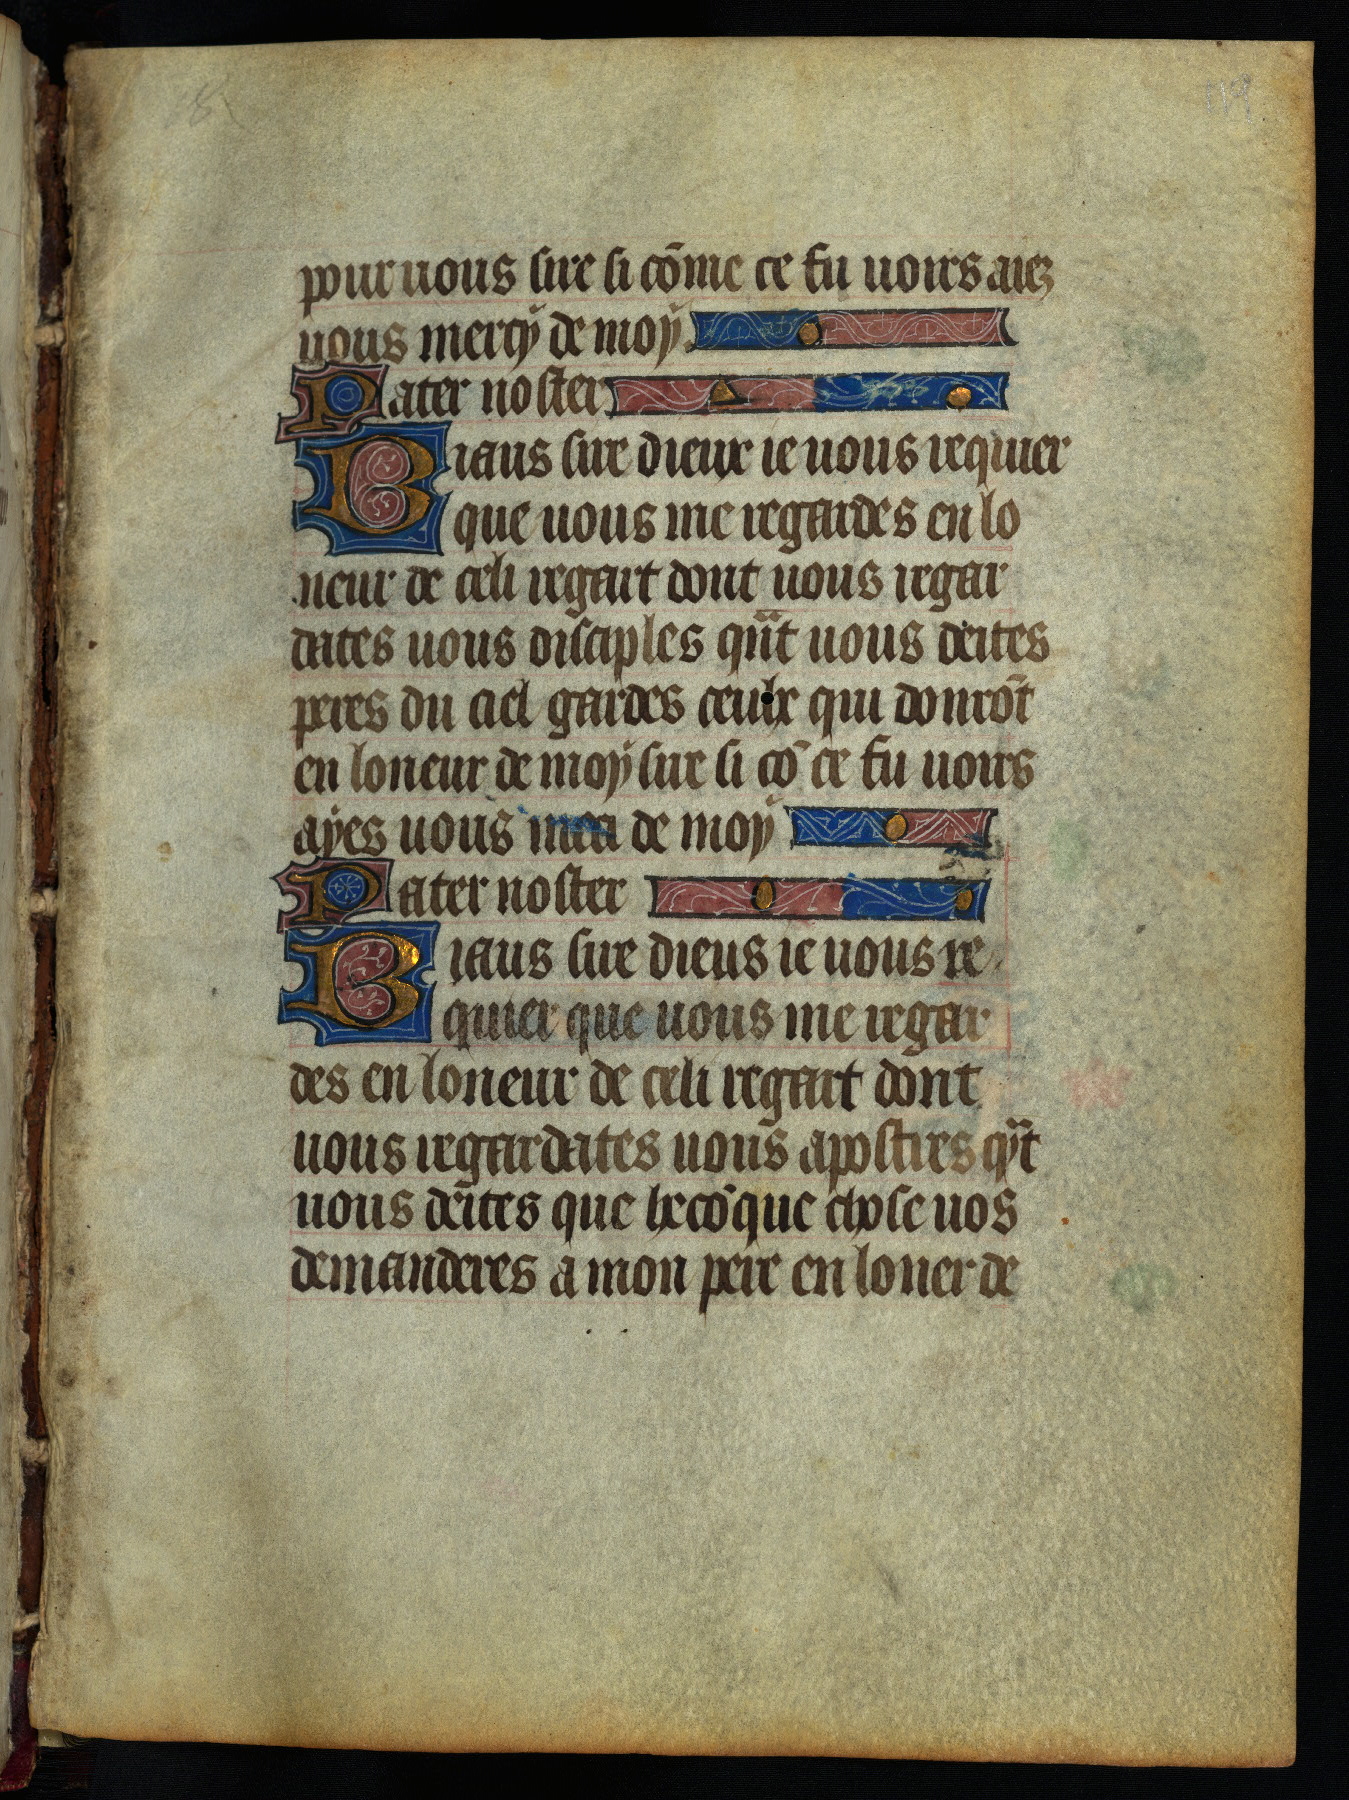 119
pour uous sire si cōme ce fu uoirs aiez
uous mercÿ de moÿ.
Pater noster
Biaus sire dieux ie uous requier
que uous me regardes en lo
neur de celi regart dont uous regar
dates uous disciples qñt uous deites
peres du ciel gardes ceulx qui donrōt
en loneur de moÿ sire si cō ce fu uoirs
aÿes uous mcci de moÿ
Pater noster
Biaus sire dieus ie uous re
quier que uous me regar
des en loneur de celi regart dont
uous regardates uous apostres qñt
uous deites que lxcōque chose uos
demanderes a mon pere en loner de